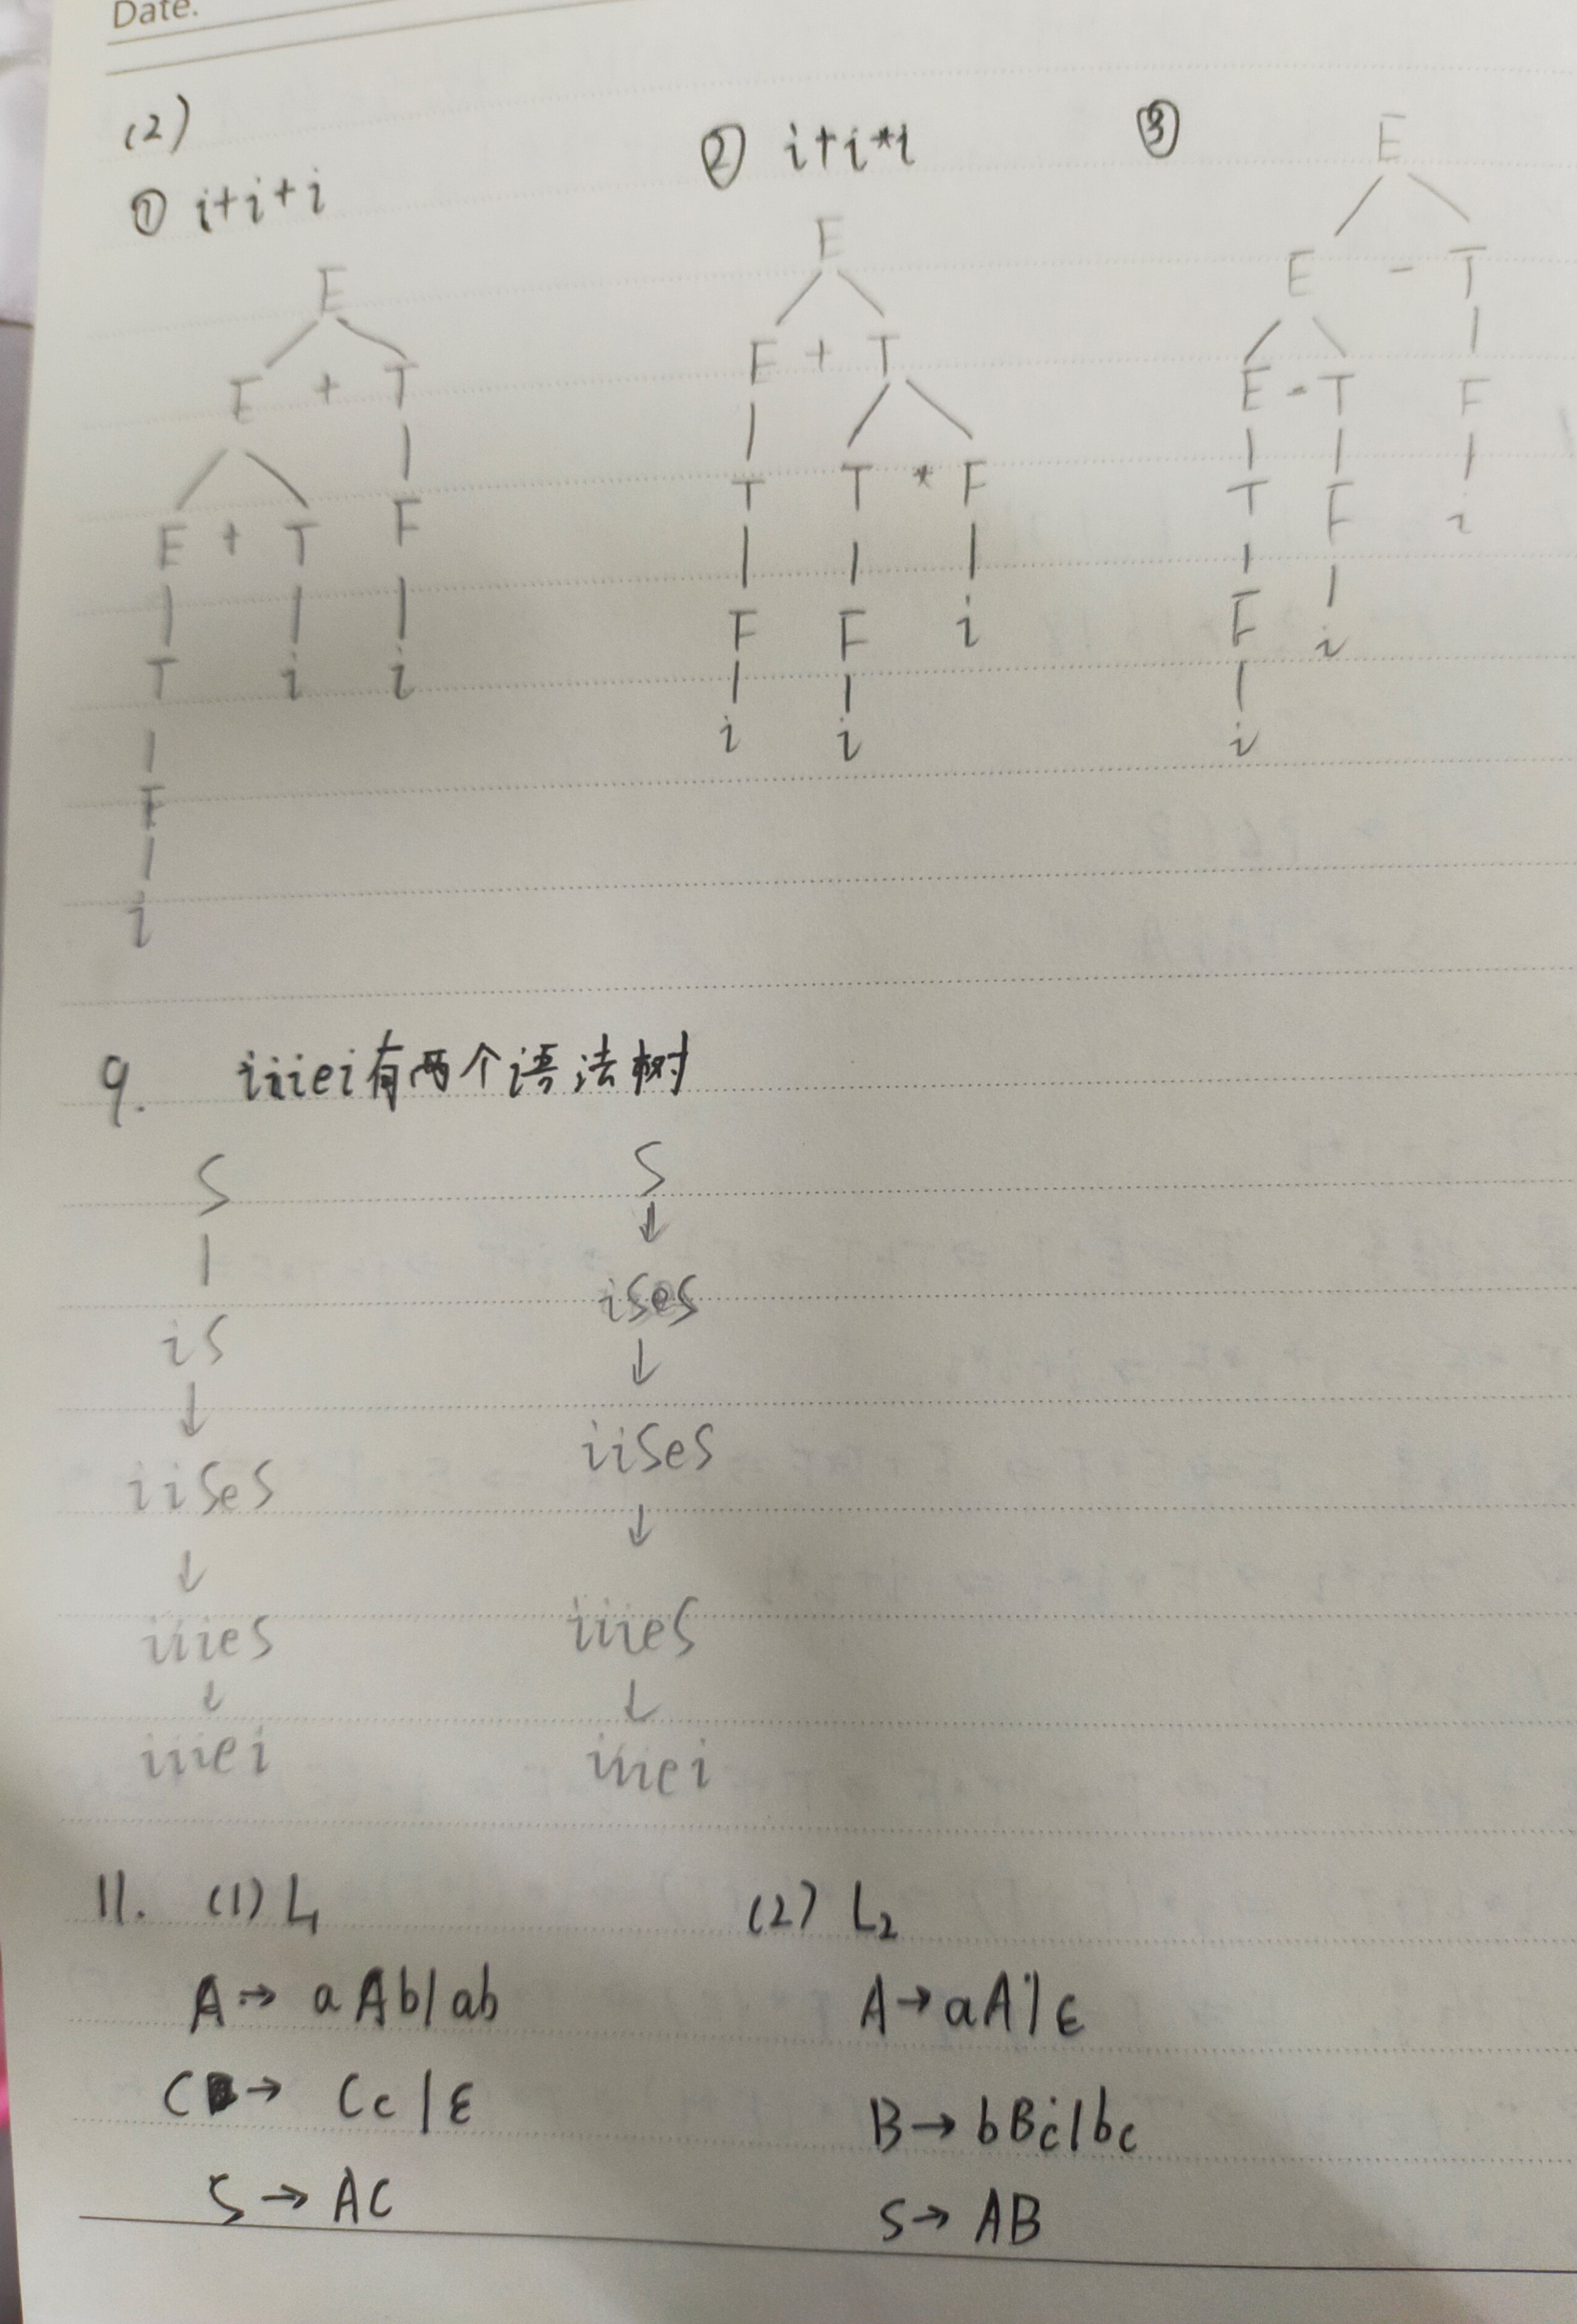 Date.
(2)
① i+i+i
② i+i*i
③
E
E + T
E + T F
T i i
F
i
E
E + T
T T * F
F F i
i i
E
E - T
E - T F
T F i
F i
i
9. iiiei有两个语法树
S
iS
iiSeS
iiieS
iiiei
S
iSeS
iiSeS
iiieS
iiiei
11. (1) L₁
A → aAb|ab
C → Cc|ε
S → AC
(2) L₂
A → aA|ε
B → bBc|bc
S → AB